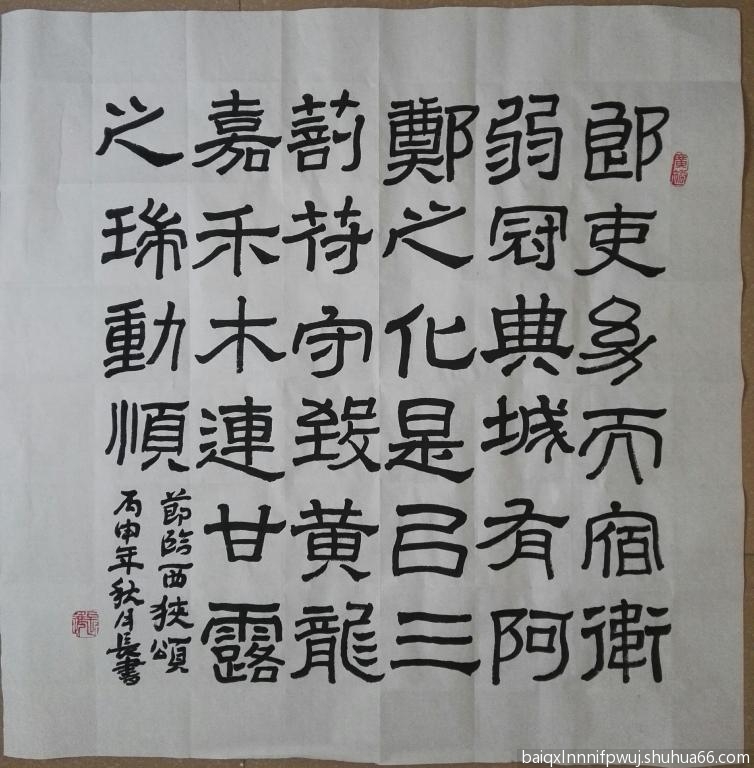 郎吏幼而宿衛
弱冠典城有阿
鄭之化是㠯三
剖苻守致黄龍
嘉禾木連甘露
之瑞動順
節臨西狹頌
丙申年秋月長書
baiqxlnnnifpwuj.shuhua66.com